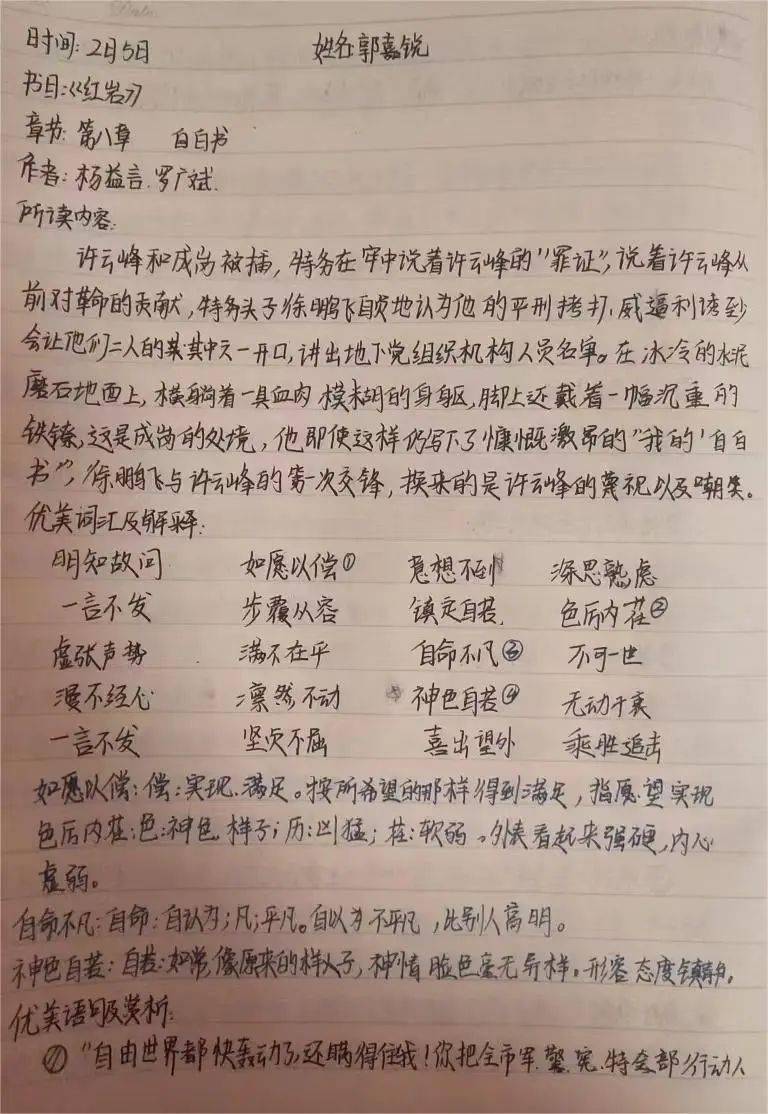 时间：2月5日 姓名：郭嘉锐
书目：《红岩》
章节：第八章 自白书
作者：杨益言.罗广斌.
所读内容：
许云峰和成岗被捕，特务在牢中说着许云峰的“罪证”，说着许云峰从
前对革命的贡献，特务头子徐鹏飞自负地认为他的严刑拷打、威逼利诱到
会让他们二人的某其中之一开口，讲出地下党组织机构人员名单。在冰冷的水泥
磨石地面上，横躺着一具血肉模糊的身躯，脚上还戴着一幅沉重的
铁镣，这是成岗的处境，他即使这样仍写下了慷慨激昂的“我的‘自白
书’”，徐鹏飞与许云峰的第一次交锋，换来的是许云峰的蔑视以及嘲笑。
优美词汇及解释：
明知故问 如愿以偿① 意想不到 深思熟虑
一言不发 步覆从容 镇定自若 色厉内荏②
虚张声势 满不在乎 自命不凡③ 不可一世
漫不经心 凛然不动 神色自若④ 无动于衷
一言不发 坚贞不屈 喜出望外 乘胜追击
如愿以偿：偿：实现.满足。按所希望的那样得到满足，指愿望实现
色厉内荏：色：神色.样子；历：凶猛；荏：软弱。外表看起来强硬，内心
虚弱。
自命不凡：自命：自认为；凡：平凡。自以为不平凡，比别人高明。
神色自若：自若：如常，像原来的样子，神情脸色毫无异样。形容态度镇静。
优美语句及赏析：
① “自由世界都快轰动了，还瞒得住我！你把全市军.警.宪.特全部行动人